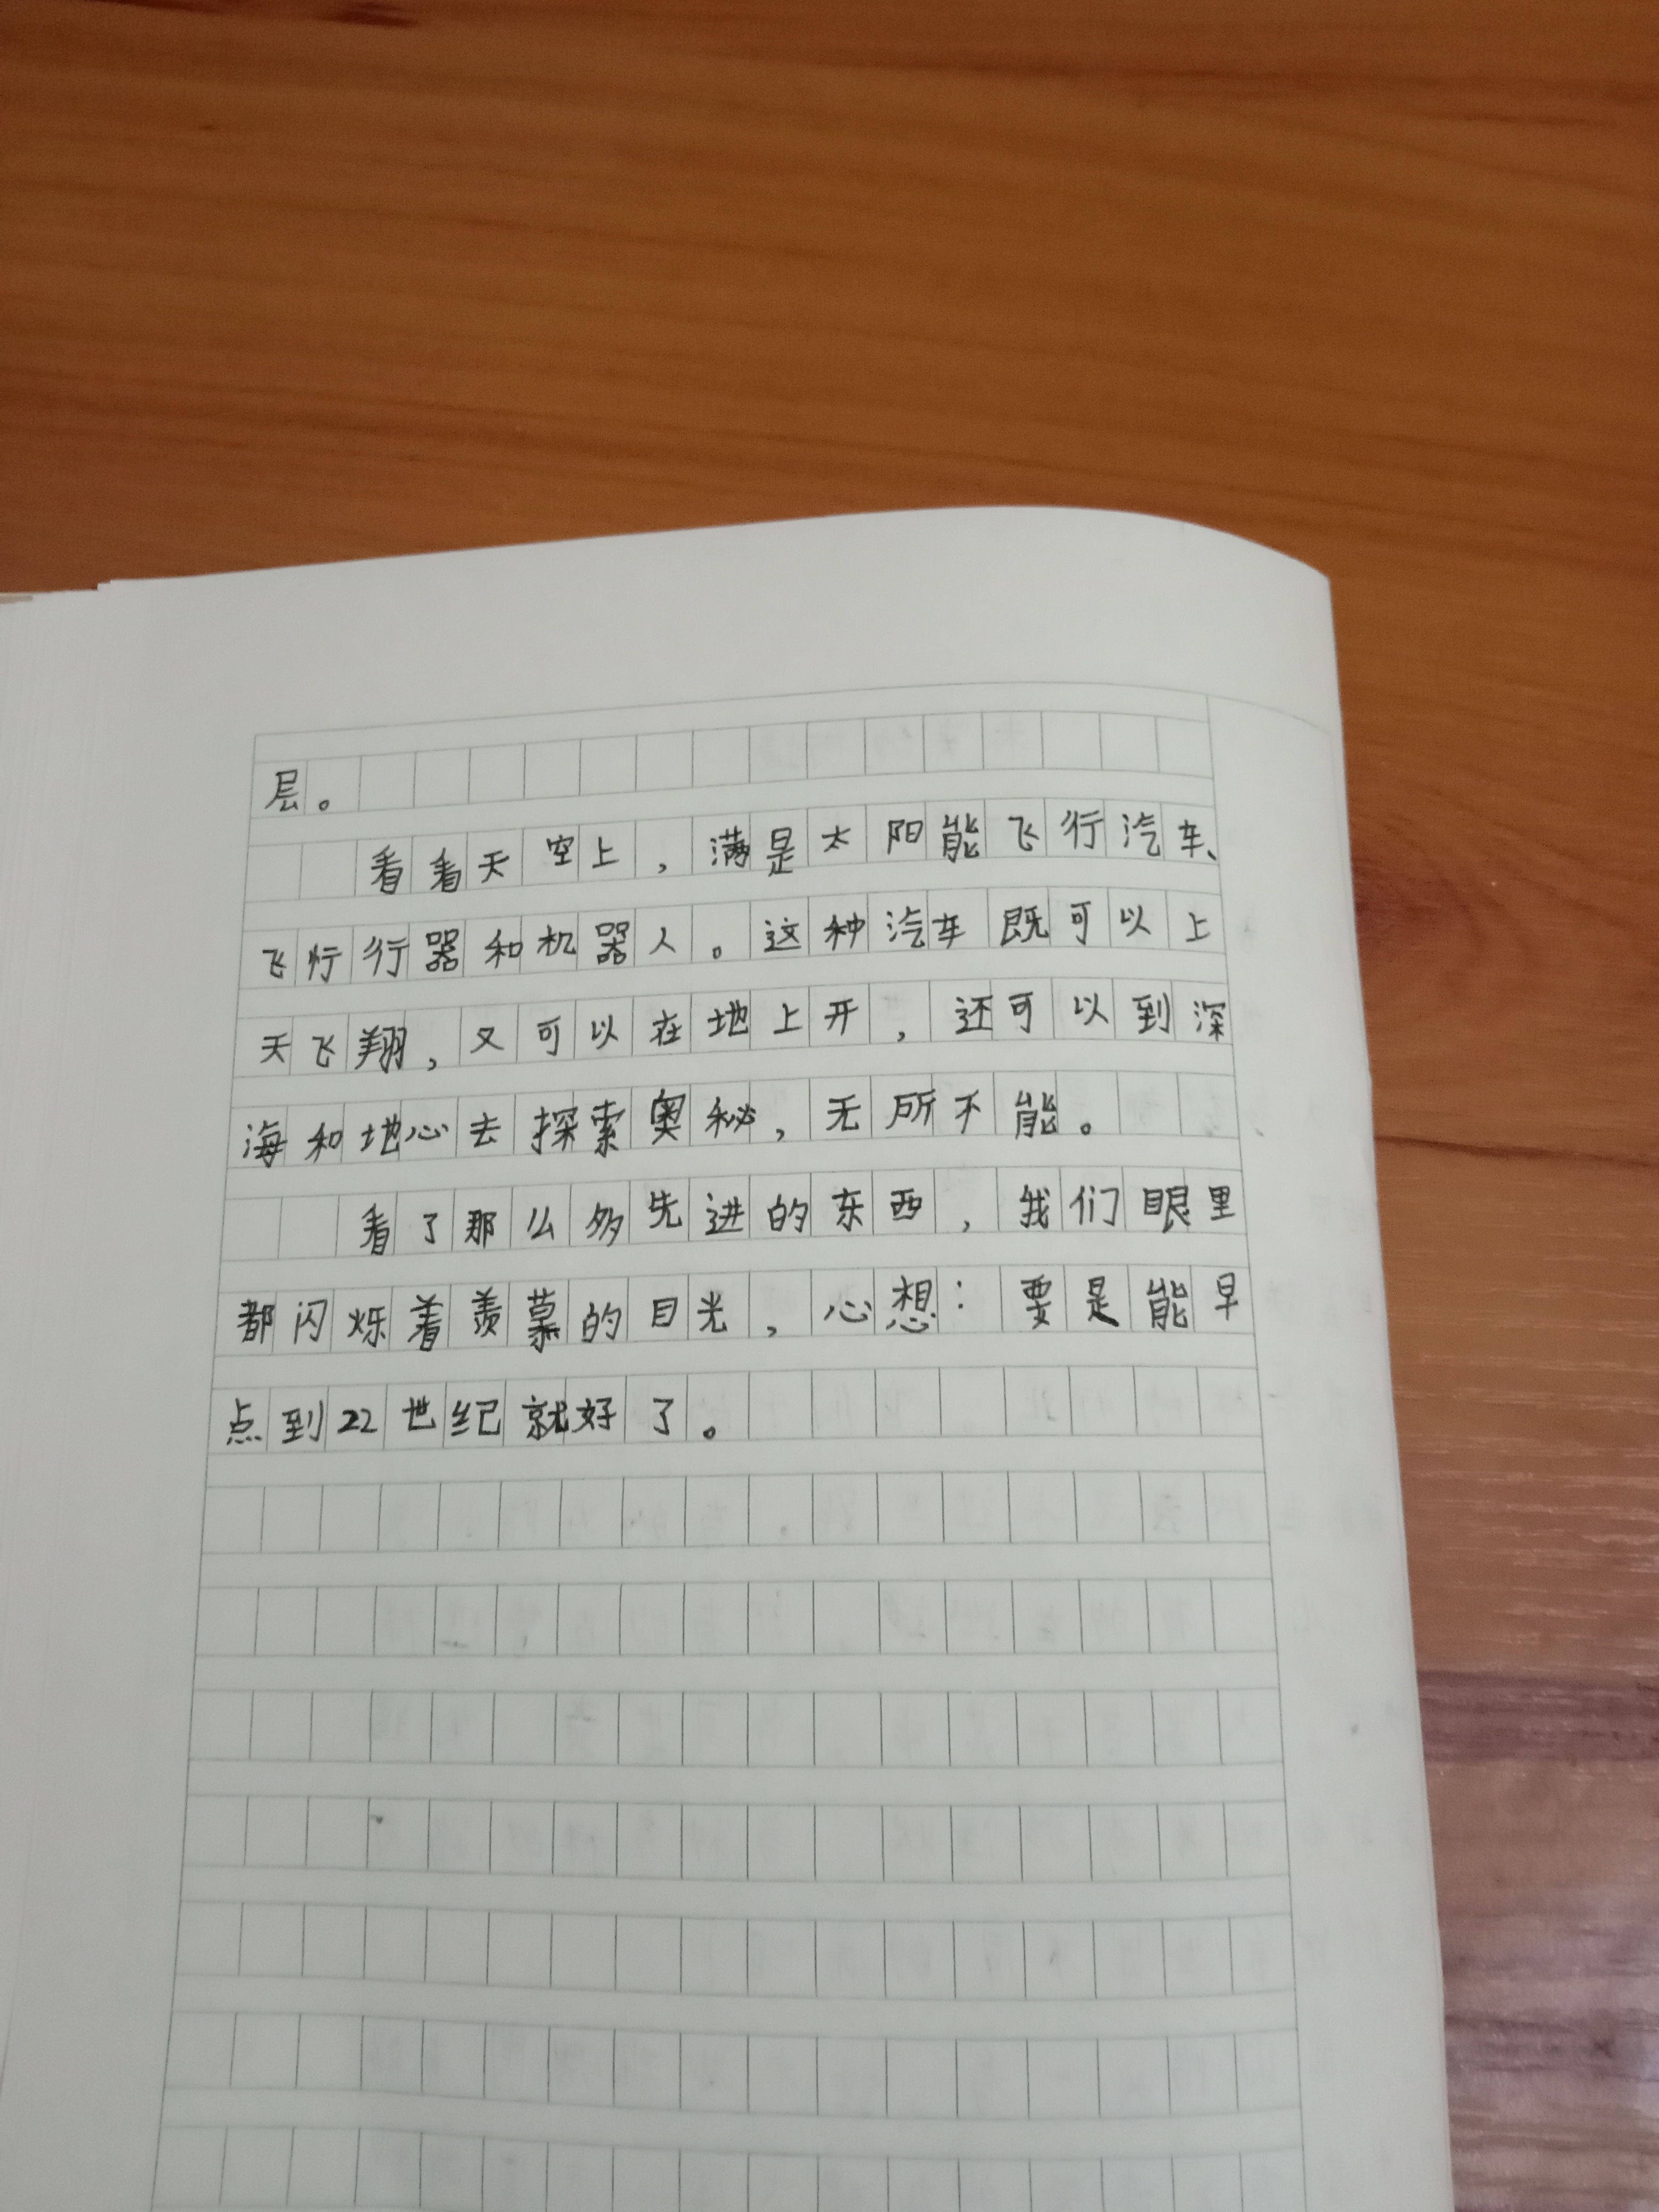 层。
看看天空上，满是太阳能飞行汽车、
飞行行器和机器人。这种汽车既可以上
天飞翔，又可以在地上开，还可以到深
海和地心去探索奥秘，无所不能。
看了那么多先进的东西，我们眼里
都闪烁着羡慕的目光，心想：要是能早
点到22世纪就好了。